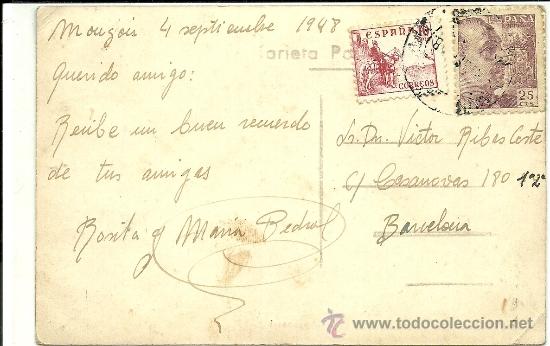 Monzón 4 septiembre 1948
Tarjeta Po
Querido amigo:
Recibe un buen recuerdo
de tus amigas
Rosita y Maria Pedrol
ESPAÑA
CORREOS
ESPAÑA
25
CTS
Sr. Dn. Victor Ribas Coste
c/ Casanovas 180 1º2ª
Barcelona
www.todocoleccion.net